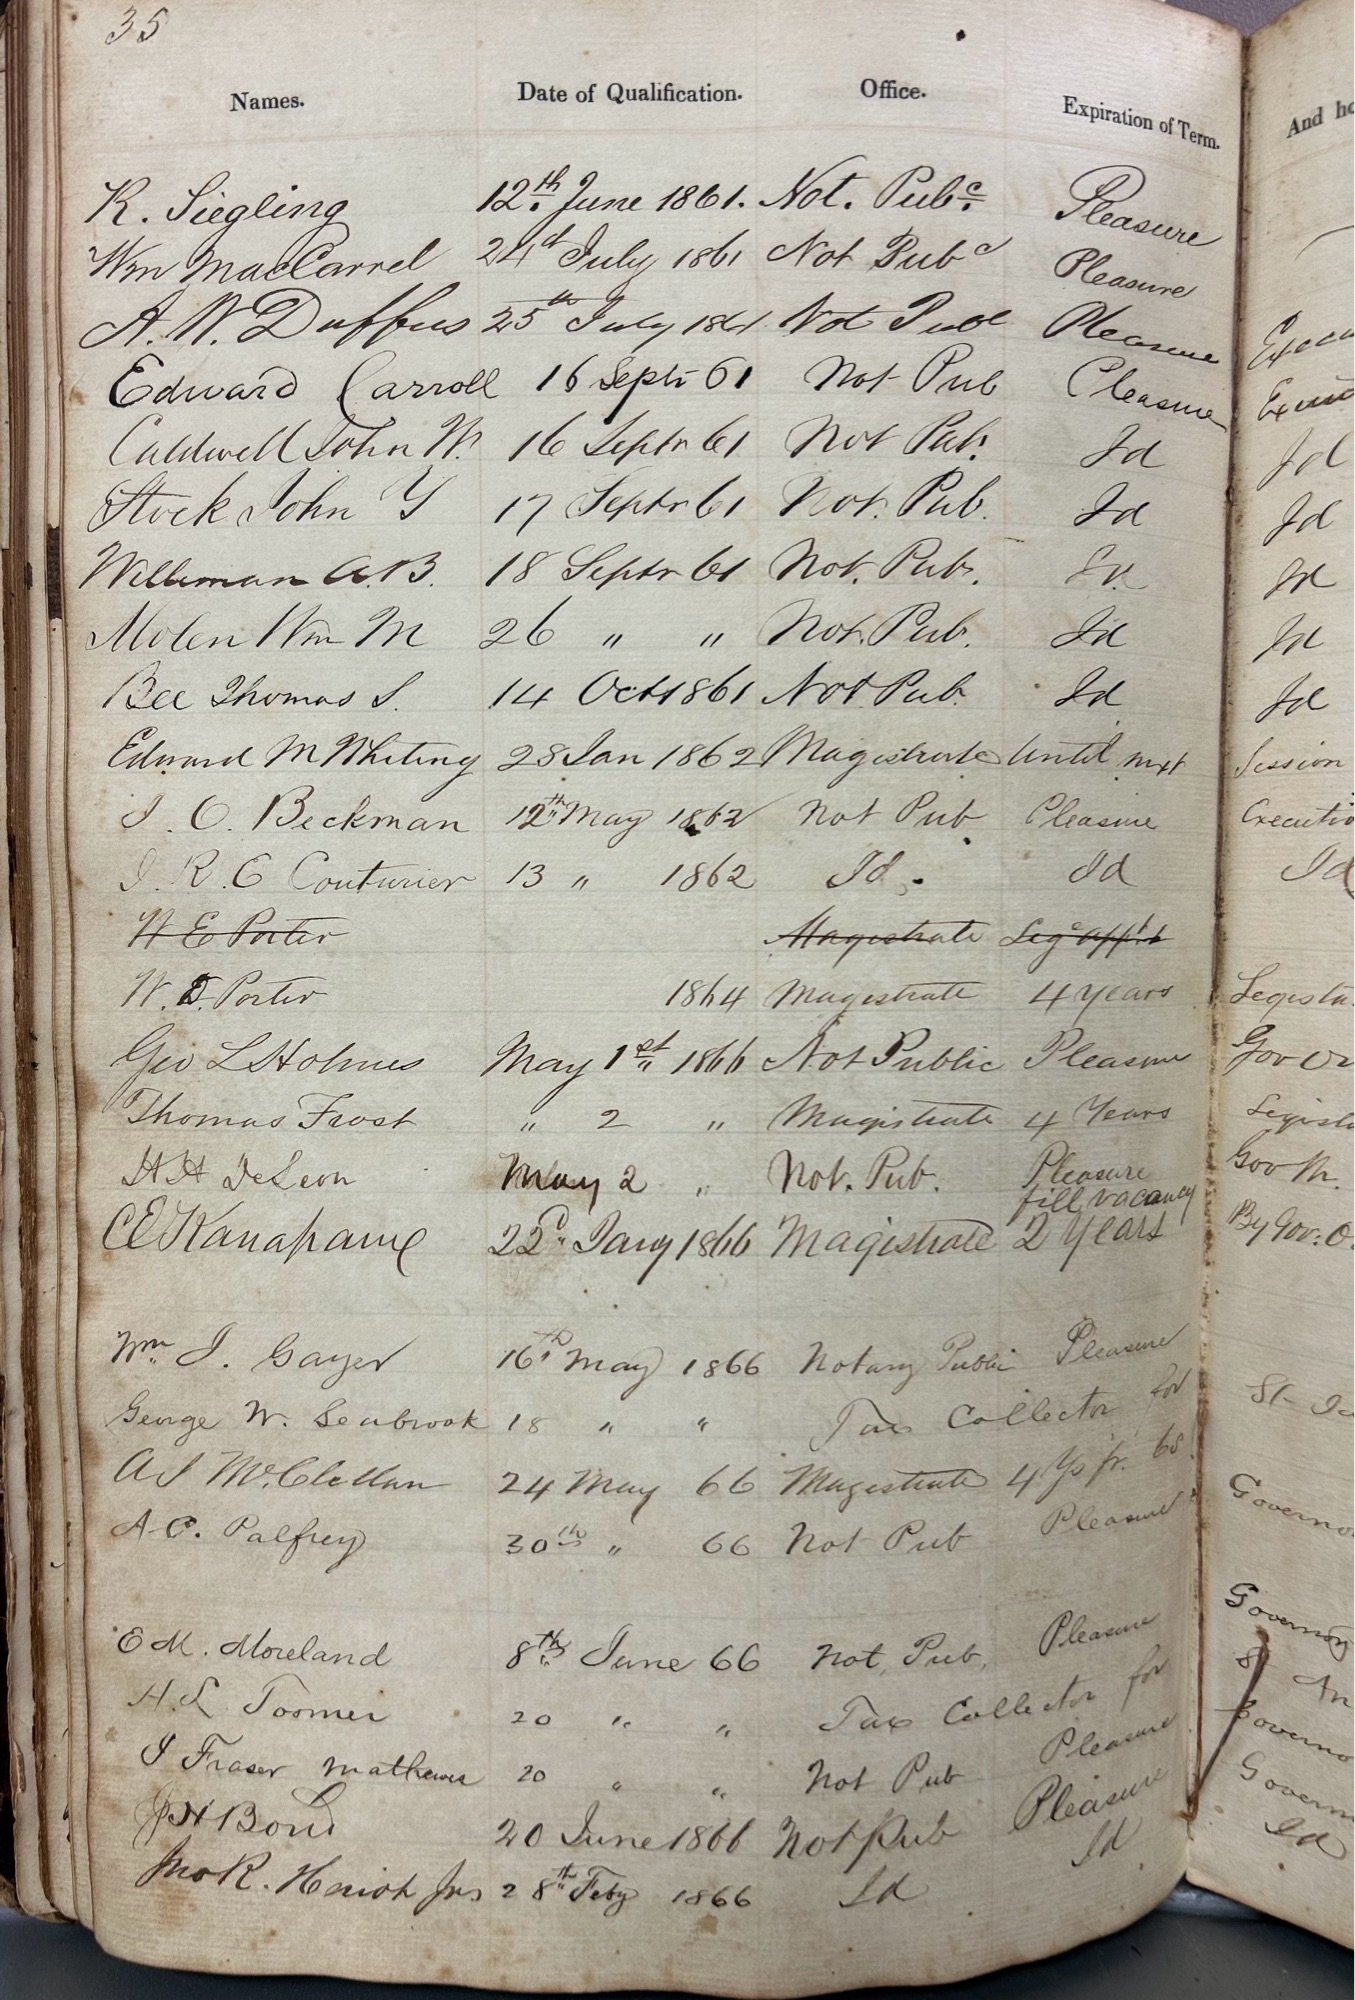 35
Names. Date of Qualification. Office. Expiration of Term. And
R. Siegling 12th June 1861. Not. Pubc. Pleasure
Wm MacCarrel 24th July 1861 Not Pubc Pleasure
A. W. Duffus 25th July 1861 Not Publ Pleasure
Edward Carroll 16 Septr 61 Not Pub Pleasure
Caldwell John W. 16 Septr 61 Not Pub. Id Id
Stock John Y 17 Septr 61 Not. Pub. Id Id
Williman A.B. 18 Septr 61 Not. Pub. Id Id
Molen Wm M 26 " " Not. Pub. Id Id
Bee Thomas S. 14 Oct 1861 Not. Pub. Id Id
Edward M Whiting 28 Jan 1862 Magistrate Until nxt Session
J. C. Beckman 12th May 1862 Not Pub Pleasure
J. R. C Couturier 13 " 1862 Id. Id Id
W E Porter Magistrate Leg appt
W. D. Porter 1864 Magistrate 4 years
Geo L Holmes May 1st 1866 Not Public Pleasure Gov Or
Thomas Frost " 2 " Magistrate 4 Years
H H DeLeon May 2 " Not. Pub. Pleasure Gov
fill vacancy
C E Kanapaux 22d Jany 1866 Magistrate 2 years By Gov. O.
Wm. J. Gayer 16th May 1866 Notary Public Pleasure
George W. Seabrook 18 " " Tax Collector for St
A J McClellan 24 May 66 Magistrate 4 Ys fr. 65
A C. Palfrey 30th " 66 Not Pub Pleasure
E M. Moreland 8th June 66 Not. Pub. Pleasure Governor
H. L Toomer 20 " " Tax Collector for
J Fraser Mathewes 20 " " Not Pub Pleasure
J H Bond 20 June 1866 Not Pub Pleasure
Jno R. Horiot Jnr 28th Feby 1866 Id Id Id